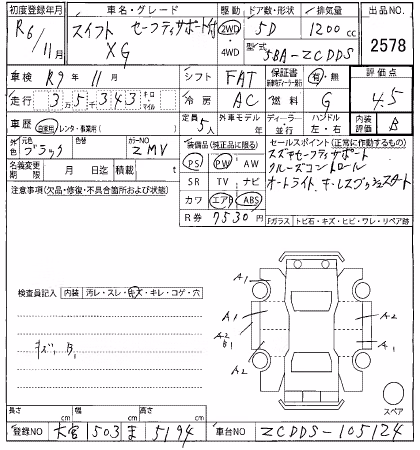 初度登録年月 車名・グレード 駆動 ドア数・形状 排気量 出品NO.
R6/11月 スイフト セーフティサポート付 XG 2WD 4WD 5D 1200cc 2578
型式 5BA-ZCDDS
車検 R9年11月 シフト FAT 保証書 有・無 評価点
走行 35343 キロ・マイル 冷房 AC 燃料 G 4.5
車歴 自家用・レンタ・事業用( ) 定員 5人 外車モデル 年 ディーラー 並行 ハンドル 左・右 内装評価 B
外色 元色 ブラック 色替 カラーNO ZMV
装備品(純正品に限る) セールスポイント(正常に作動するもの)
名義変更期限 月 日迄 積載 t
PS PW AW スズキセーフティサポート
注意事項(欠品・修復・不具合箇所および状態)
SR TV ナビ クルーズコントロール
カワ エアB ABS オートライト、キーレスプッシュスタート
R券 7530円 Fガラス トビ石・キズ・ヒビ・ワレ・リペア跡
検査員記入 内装 汚レ・スレ・キズ・キレ・コゲ・穴
キズ
A1
A1
A2
B1
A2
A2
A1
A1
スペア
長さ cm 幅 cm 高さ cm
登録NO 大宮 503 ま 5194 車台NO ZCDDS-105124